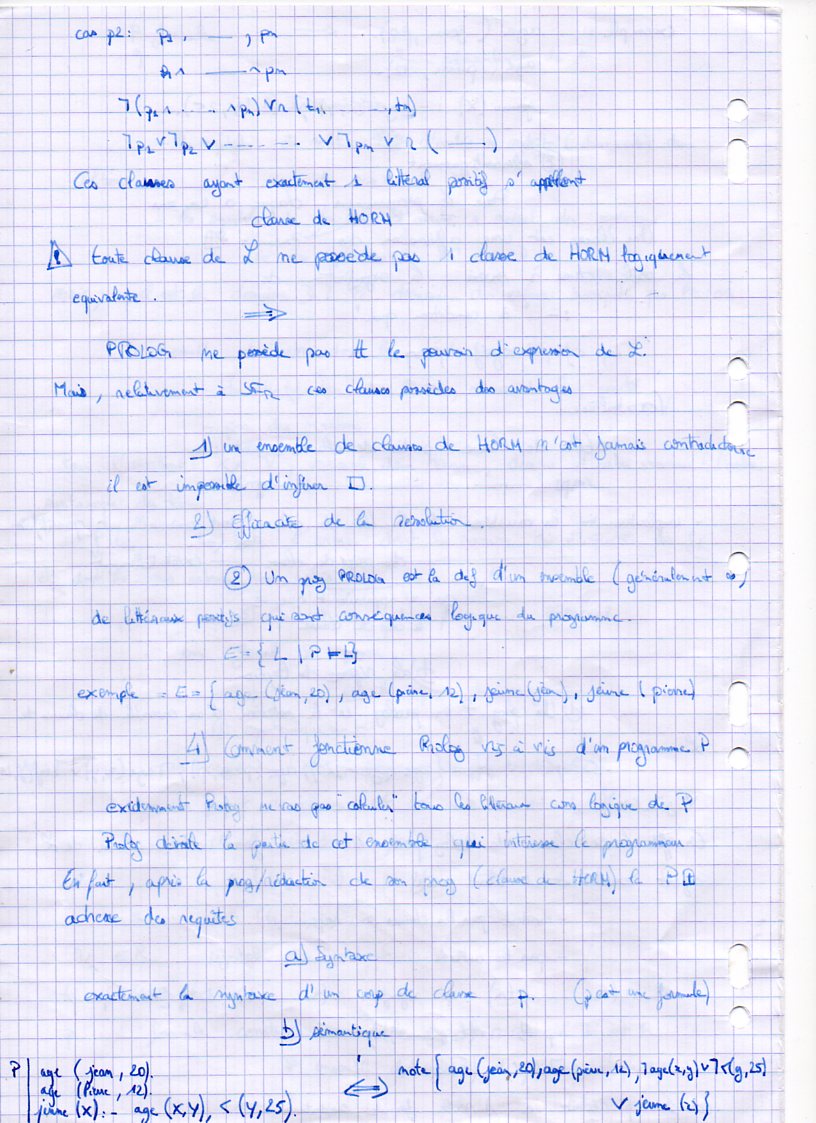 cas p2: p1, ——, pn
p1 ∧ —— ∧ pn
¬(p1 ∧ ..... ∧ pn) ∨ r (t1, ......., tn)
¬p1 ∨ ¬p2 ∨ ------- ∨ ¬pn ∨ r (——)
Ces clauses ayant exactement 1 littéral positif s'appellent
clause de HORM
⚠ toute clause de L ne possède pas 1 clause de HORM logiquement
equivalente.
⟹
PROLOG ne possède pas tt le pouvoir d'expression de L.
Mais, relativement à ces clauses possèdes des avantages
1) un ensemble de clauses de HORM n'est jamais contradictoire
il est impossible d'inférer □.
2) Efficacité de la résolution.
② Un prog PROLOG est la def d'un ensemble (généralement ∞)
de littéraux positifs qui sont conséquences logique du programme.
E = { L | P ⊢ L}
exemple = E = { age (jean, 20), age (pierre, 12), jeune (jean), jeune (pierre)
4) Comment fonctionne Prolog vis à vis d'un programme P
evidemment Prolog ne vas pas "calculer" tous les litéraux cons logique de P
Prolog dévoile la partie de cet ensemble qui intéresse le programmeur
En fait, après la prog/rédaction de son prog (clause de HORM) le P
acheve des requêtes
a) Syntaxe
exactement la syntaxe d'un corp de clause p. (p est une formule)
b) sémantique
P | age (jean, 20).
age (Pierre, 12).
jeune (X) :- age (X,Y), < (Y,25).
⟺ note { age (jean,20), age (pierre, 12), ¬age(x,y) ∨ ¬<(y,25)
∨ jeune (x) }